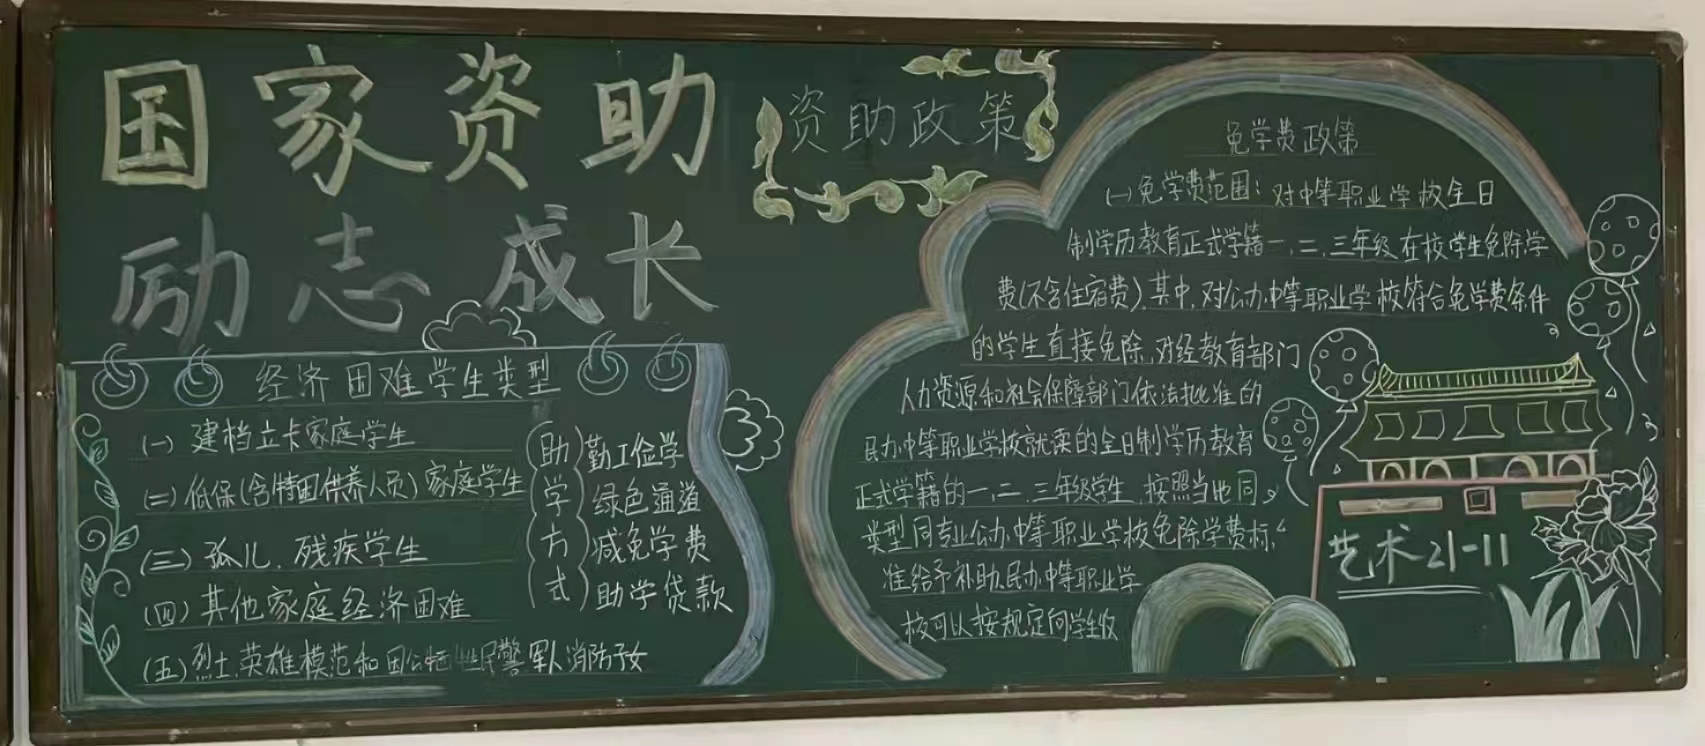 国家资助
励志成长
资助政策
经济困难学生类型
(一) 建档立卡家庭学生
(二) 低保(含特困供养人员) 家庭学生
(三) 孤儿、残疾学生
(四) 其他家庭经济困难
(五) 烈士、英雄模范和因公牺牲民警军人消防子女
助学方式
勤工俭学
绿色通道
减免学费
助学贷款
免学费政策
(一) 免学费范围：对中等职业学校全日
制学历教育正式学籍一、二、三年级在校学生免除学
费(不含住宿费),其中,对公办中等职业学校符合免学费条件
的学生直接免除,对经教育部门
人力资源和社会保障部门依法批准的
民办中等职业学校就读的全日制学历教育
正式学籍的一、二、三年级学生,按照当地同
类型同专业公办中等职业学校免除学费标
准给予补助,民办中等职业学
校可以按规定向学生收
艺术21-11